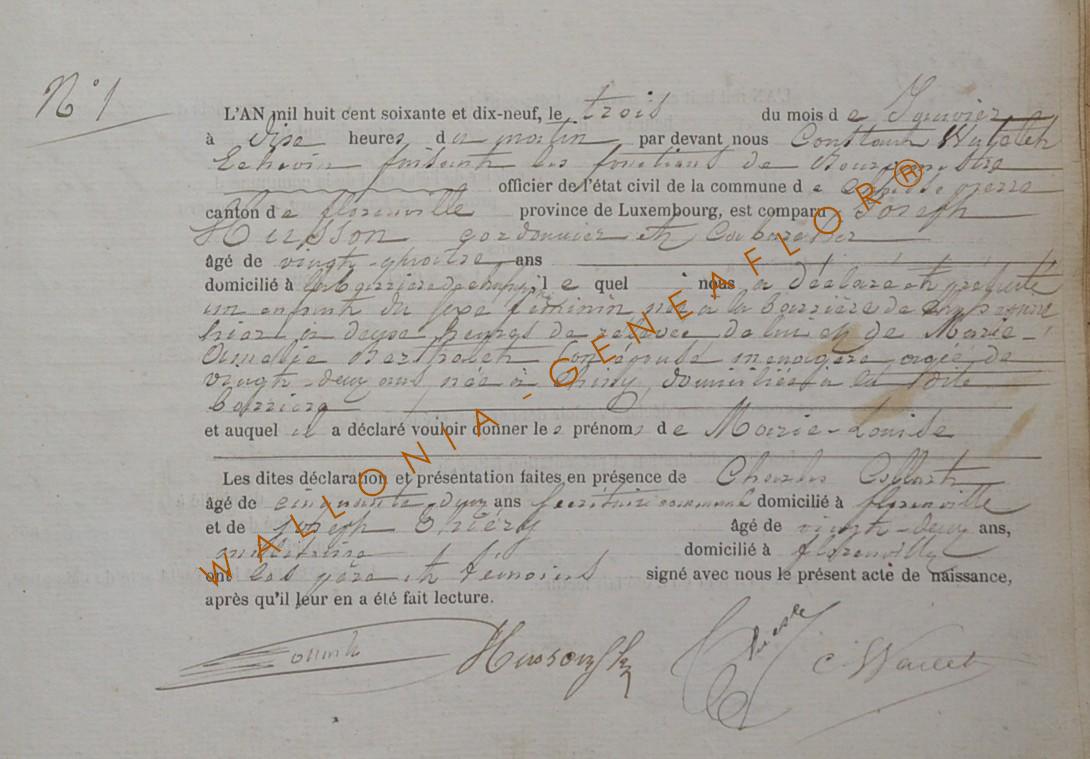 N° 1
L'AN mil huit cent soixante et dix-neuf, le trois du mois de Janvier
à dix heures du matin par devant nous Constant
Echevin faisant les fonctions de Bourgmestre
officier de l'état civil de la commune de
canton de florenville province de Luxembourg, est comparu Joseph
Husson cordonnier et Cabaretier
âgé de vingt-quatre ans
domicilié à la barrière de lequel nous a déclaré et présenté
un enfant du sexe féminin née à la barrière de
hier à deux heures de relevée de lui et de Marie-
son épouse ménagère agée de
vingt-deux ans, née à Chiny, domiciliée à la dite
barrière
et auquel il a déclaré vouloir donner les prénoms de Marie-Louise
Les dites déclaration et présentation faites en présence de Charles Collart
âgé de cinquante deux ans secrétaire communal domicilié à florenville
et de Joseph âgé de vingt-deux ans,
militaire domicilié à florenville
ont les père et témoins signé avec nous le présent acte de naissance,
après qu'il leur en a été fait lecture.
Husson
WALLONIA - GENEAFLOR®